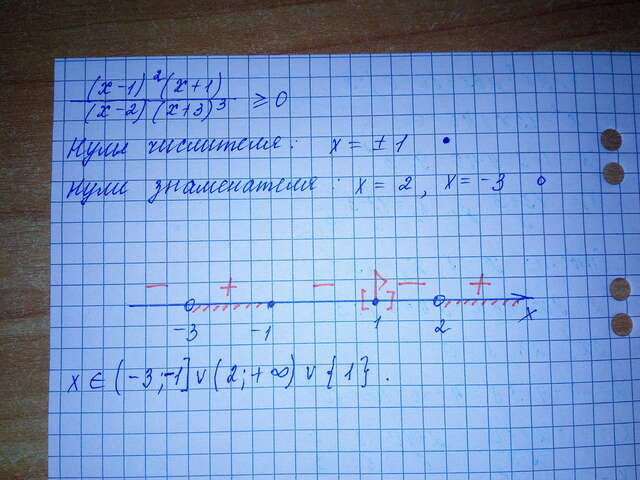 (x-1)²(x+1)
(x-2)(x+3)³ ≥ 0
Нули числителя: x = ±1 •
Нули знаменателя: x = 2, x = -3 o
− + − [ ] − +
-3 -1 1 2 x
x ∈ (-3;-1] ∨ (2;+∞) ∨ {1}.